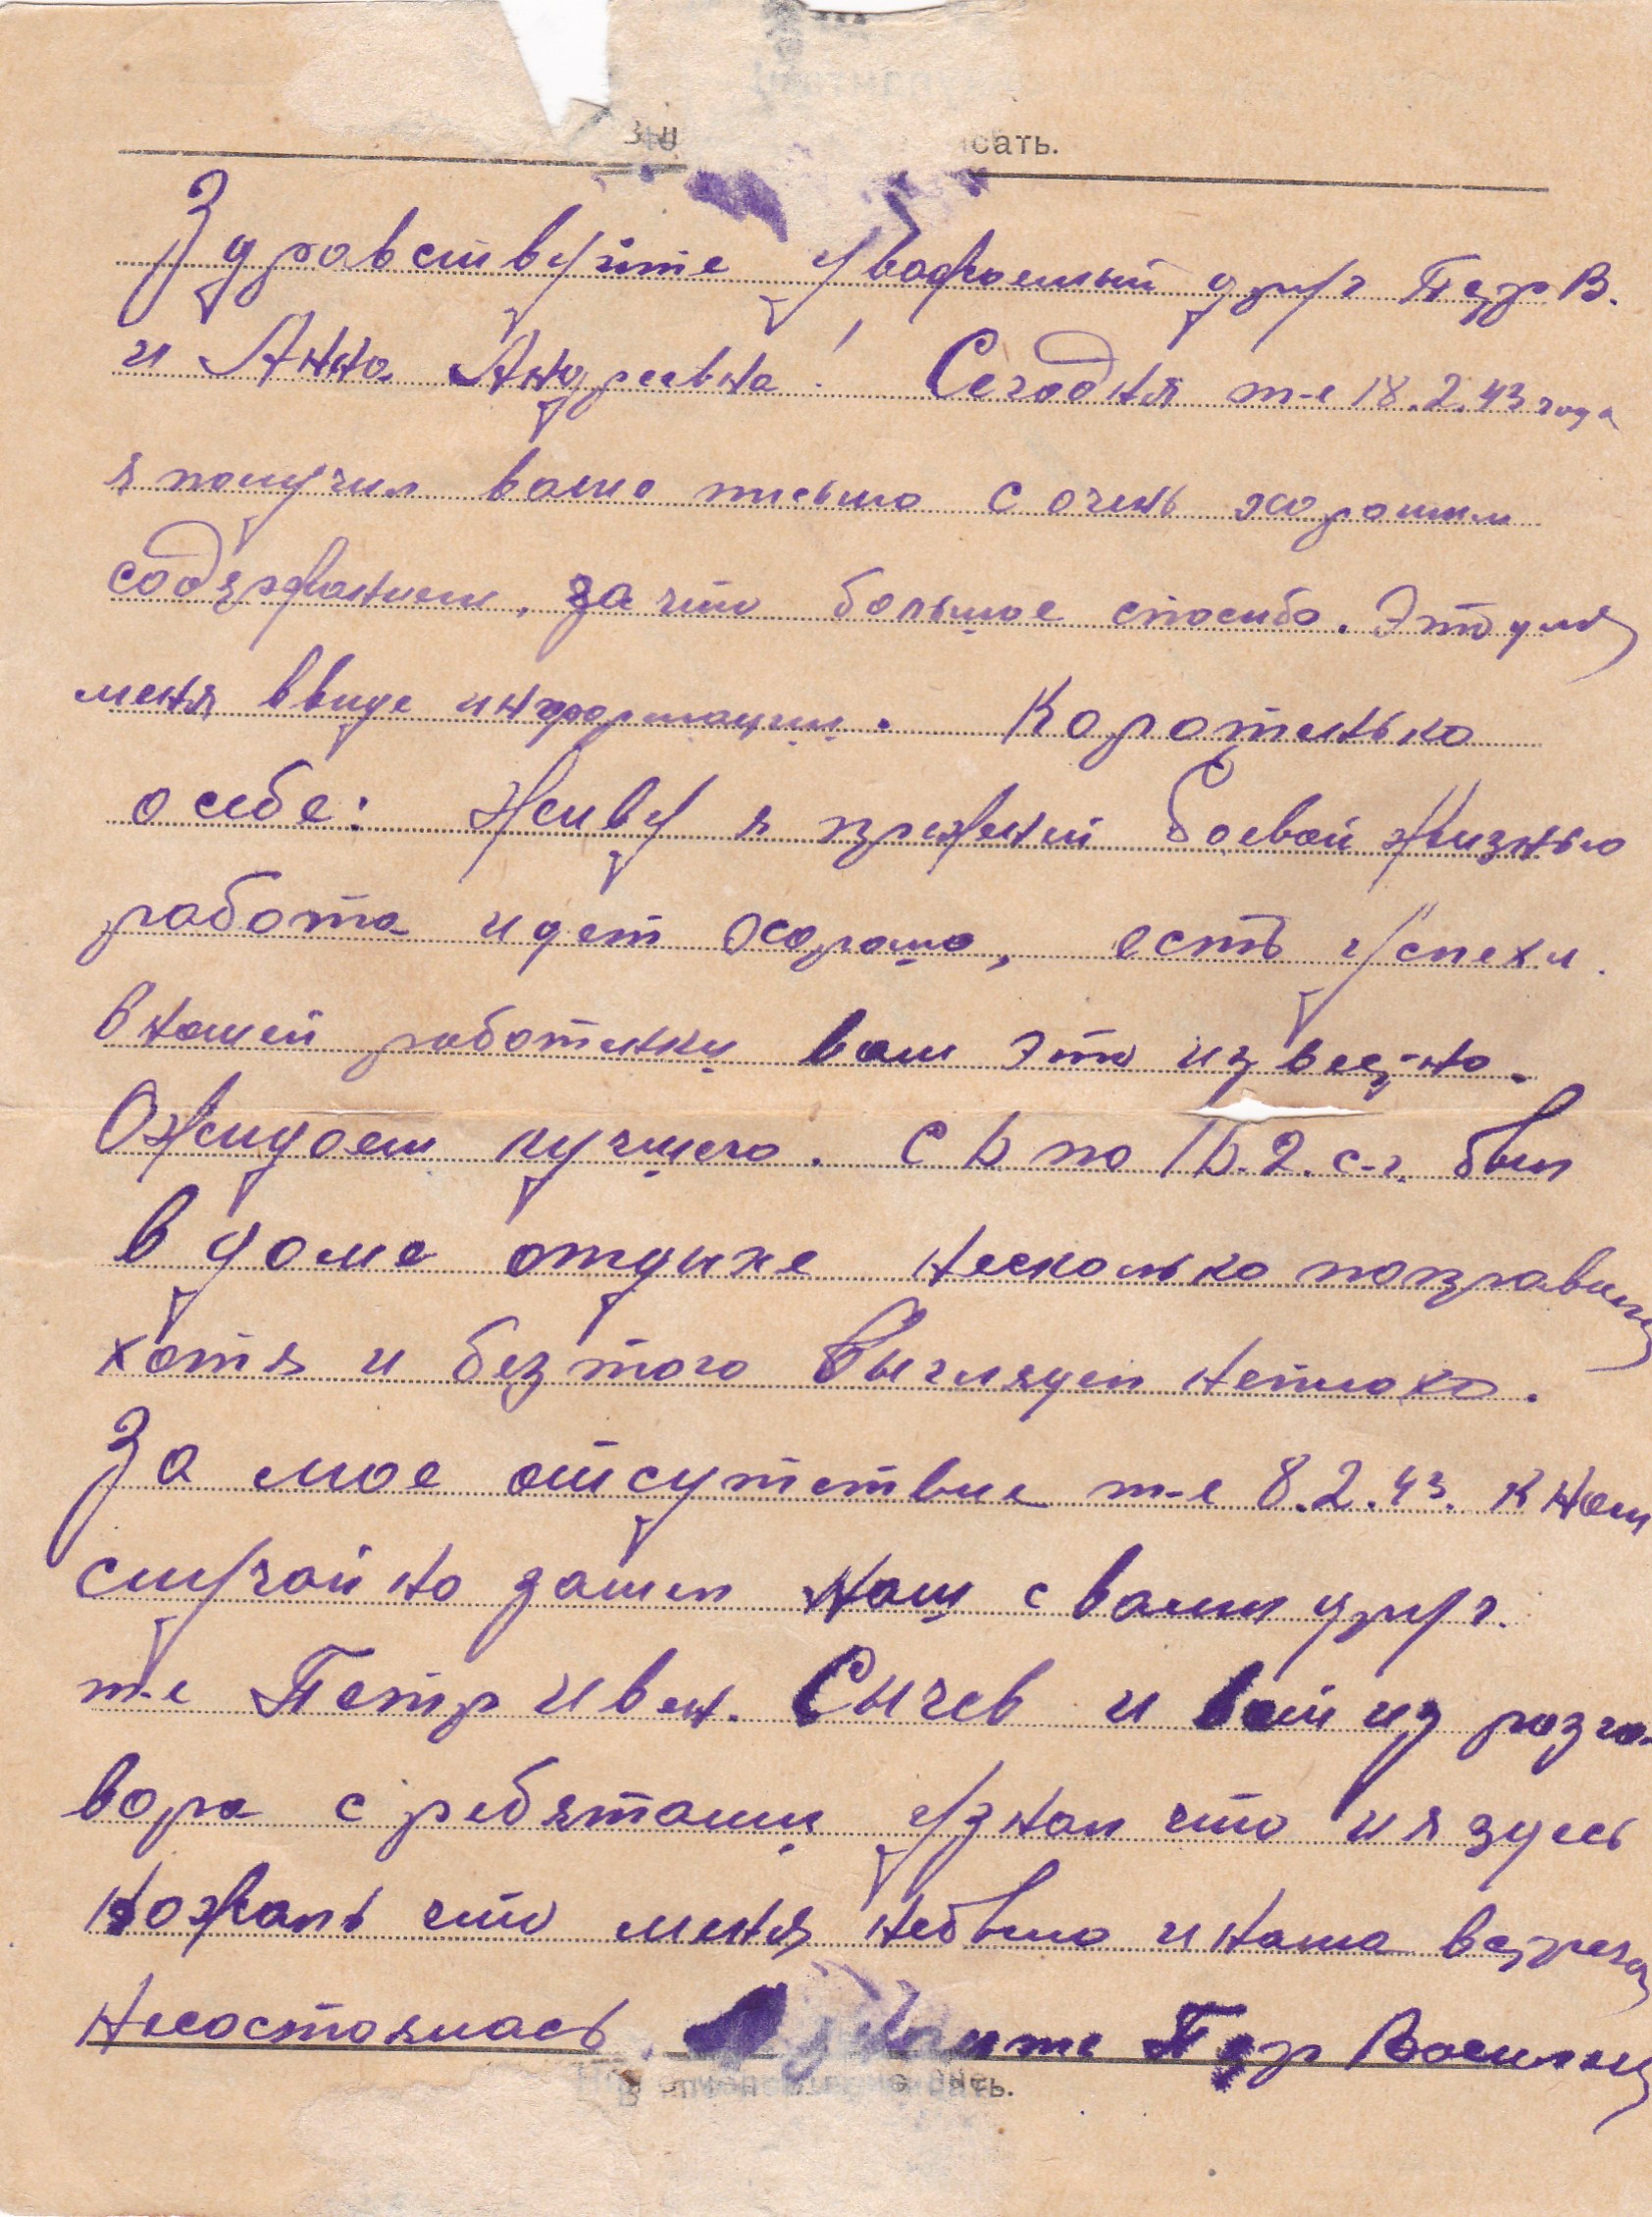 исать.
Здравствуйте уважаемый друг Петр В.
и Анна Андреевна! Сегодня т-е 18.2.43 года
я получил ваше письмо с очень хорошим
содержанием, за что большое спасибо. Это для
меня ввиде информации. Коротенько
о себе: Живу я прежней боевой жизнью
работа идет хорошо, есть успехи
в нашей работенки вам это известно.
Ожидаем лучшего. С 5 по 15.2.с-г. был
в доме отдыхе несколько поправился
хотя и без того выглядел неплохо.
За мое отсутствие т-е 8.2.43. к нам
случайно зашел наш с вами друг.
т-е Петр Иван. Сычев и вот из разго-
вора с ребятами узнал что и я здесь
но жаль что меня небыло и наша встреча
несостоялась. Петр Васильев